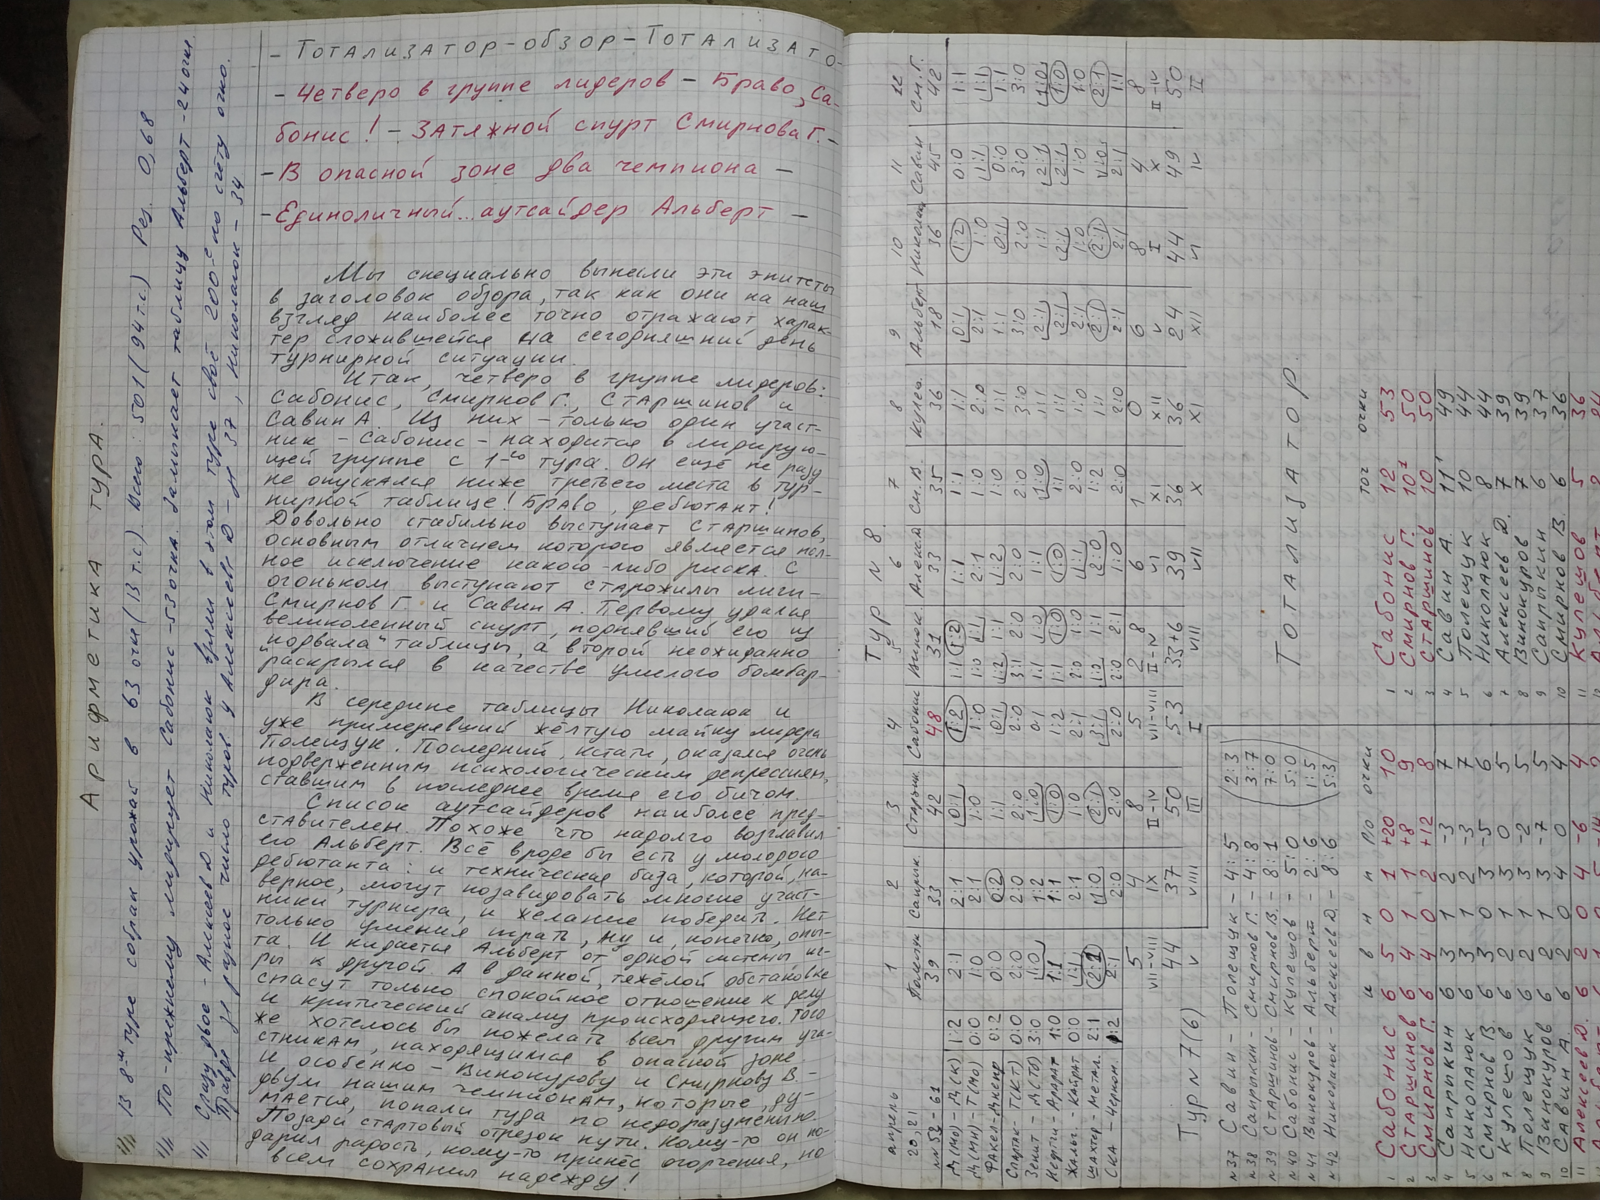 Арифметика тура.
В 8-м туре собран урожай в 63 очка (13 т.с.). Всего: 501 (94 т.с.) Рез. 0,68
По-прежнему лидирует Сабонис - 53 очка. Замыкает таблицу Альберт - 24 очка.
Сразу двое - Алексеев Д и Николаюк взяли в этом туре своё 200-е по счету очко.
разное число туров у Алексеева Д - 37, Николаюк - 34
- Тотализатор - обзор - Тотализато-
- Четверо в группе лидеров - Браво, Са-
бонис! - Затяжной спурт Смирнова Г. -
- В опасной зоне два чемпиона -
- Единоличный аутсайдер Альберт -
Мы специально вынесли эти эпитеты
в заголовок обзора, так как они на наш
взгляд наиболее точно отражают харак-
тер сложившейся на сегодняшний день
турнирной ситуации.
Итак, четверо в группе лидеров:
Сабонис, Смирнов Г., Старшинов и
Савин А. Из них - только один участ-
ник - Сабонис - находится в лидирую-
щей группе с 1-го тура. Он ещё не разу
не опускался ниже третьего места в тур-
нирной таблице! Браво, дебютант!
Довольно стабильно выступает Старшинов,
основным отличием которого является пол-
ное исключение какого-либо риска. С
огоньком выступают старожилы лиги -
Смирнов Г. и Савин А. Первому удался
великолепный спурт, поднявший его из
"подвала" таблицы, а второй неожиданно
раскрылся в качестве умелого бомбар-
дира.
В середине таблицы Николаюк и
уже примерявший жёлтую майку лидера
Полещук. Последний, кстати, оказался очень
подверженным психологическим депрессиям,
ставшим в последнее время его бичом.
Список аутсайдеров наиболее пред-
ставителен. Похоже что надолго возглавил
его Альберт. Всё вроде бы есть у молодого
дебютанта: и техническая база, которой, на-
верное, могут позавидовать многие участ-
ники турнира, и желание победить. Нет
только умения играть, ну и, конечно, опы-
та. И кидается Альберт от одной системы иг-
ры к другой. А в данной, тяжёлой обстановке
спасут только спокойное отношение к делу
и критический анализ происходящего. Того
же хотелось бы пожелать всем другим уча-
стникам, находящимся в опасной зоне
и особенно - Винокурову и Смирнову В. -
двум нашим чемпионам, которые, ду-
мается, попали туда по недоразумению.
Позади стартовый отрезок пути. Кому-то он по-
дарил радость, кому-то принёс огорчения, но
всем сохранил надежду!
Тур N 8
апрель 1 2 3 4 5 6 7 8 9 10 11 12
20, 21 Полещук Сапрык. Старшин. Сабонис Винок. Алексеев См.В. Кулеш. Альберт Николаюк Савин См.Г.
NN 52-61 39 33 42 48 31 33 35 36 18 36 45 42
Д(Мо) - Д(К) 1:2 2:1 2:1 0:1 1:2 1:1 1:2 1:1 1:1 1:1 0:1 1:2 0:0 1:1
Д(Мн) - Т(Мо) 0:0 1:0 2:1 1:0 1:0 1:0 1:1 2:1 1:0 2:0 2:1 1:0 1:1 1:1
Факел - Днепр 0:2 0:0 0:2 1:1 0:1 1:2 1:1 1:2 1:0 1:0 1:1 0:1 0:0 1:1
Спартак - Т(КТ) 0:0 2:0 2:0 2:0 2:0 3:1 2:0 2:0 2:0 3:0 3:0 2:0 3:0 3:0
Зенит - Д(Тб) 3:0 1:0 1:2 1:0 0:1 1:1 1:0 1:1 1:0 1:1 2:1 1:1 2:1 1:0
Нефтчи - Арарат 1:0 1:1 1:1 1:0 1:2 1:1 1:0 1:0 1:1 1:1 2:1 2:1 2:1 1:0
Жальг. - Кайрат 0:0 1:1 2:1 1:0 2:1 2:0 1:0 1:1 2:0 1:0 2:1 1:0 1:0 1:0
Шахтер - Метал. 2:1 2:1 1:0 2:1 3:1 1:0 1:1 2:0 1:2 1:1 2:1 2:1 1:0 2:1
СКА - Черном. 1:2 2:1 2:0 2:0 2:0 2:0 2:1 1:0 2:0 2:0 2:1 2:1 2:1 1:1
5 4 8 5 2 8 6 1 0 6 8 4 8
VII-VIII IX II-IV VII-VIII II-IV VI XI XII V I X II-IV
44 37 50 53 33+6 39 36 36 24 44 49 50
V VIII III I VIII VII X XI XII VI IV II
Тур N 7(6)
N37 Савин - Полещук - 4:5 (2:3
N38 Сапрыкин - Смирнов Г. - 4:8 3:7
N39 Старшинов - Смирнов В. - 8:1 7:0
N40 Сабонис - Кулешов - 5:0 5:0
N41 Винокуров - Альберт - 2:6 1:5
N42 Николаюк - Алексеев Д. - 8:6 5:3)
и в н п р/о очки
1 Сабонис 6 5 0 1 +20 10
2 Старшинов 6 4 1 1 +8 9
3 Смирнов Г. 6 4 0 2 +12 8
4 Саприкин 6 3 1 2 -3 7
5 Николаюк 6 3 1 2 -3 7
6 Смирнов В. 6 3 0 3 -5 6
7 Кулешов 6 2 1 3 0 5
8 Полещук 6 2 1 3 -2 5
9 Винокуров 6 2 1 3 -7 5
10 Савин А. 6 2 0 4 0 4
11 Алексеев Д. 6 2 0 4 -6 4
Тотализатор.
точ очки
1 Сабонис 12 53
2 Смирнов Г. 10 50
3 Старшинов 10 50
4 Савин А. 11 49
5 Полещук 10 44
6 Николаюк 8 44
7 Алексеев Д. 7 39
8 Винокуров 7 39
9 Сапрыкин 6 37
10 Смирнов В. 6 36
11 Кулешов 5 36